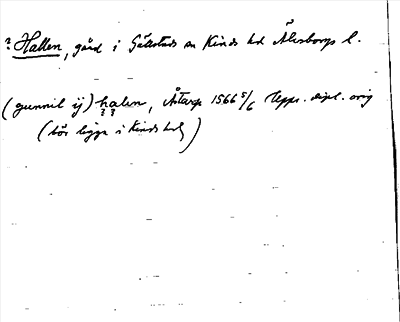 ? Hallen, gård i Gällstads sn Kinds hd Älvsborgs l.
(gunnil ij) halen, Åtarp 1566 5/6 Uppr. dipl. orig
? ?
(bör ligga i Kinds hd)